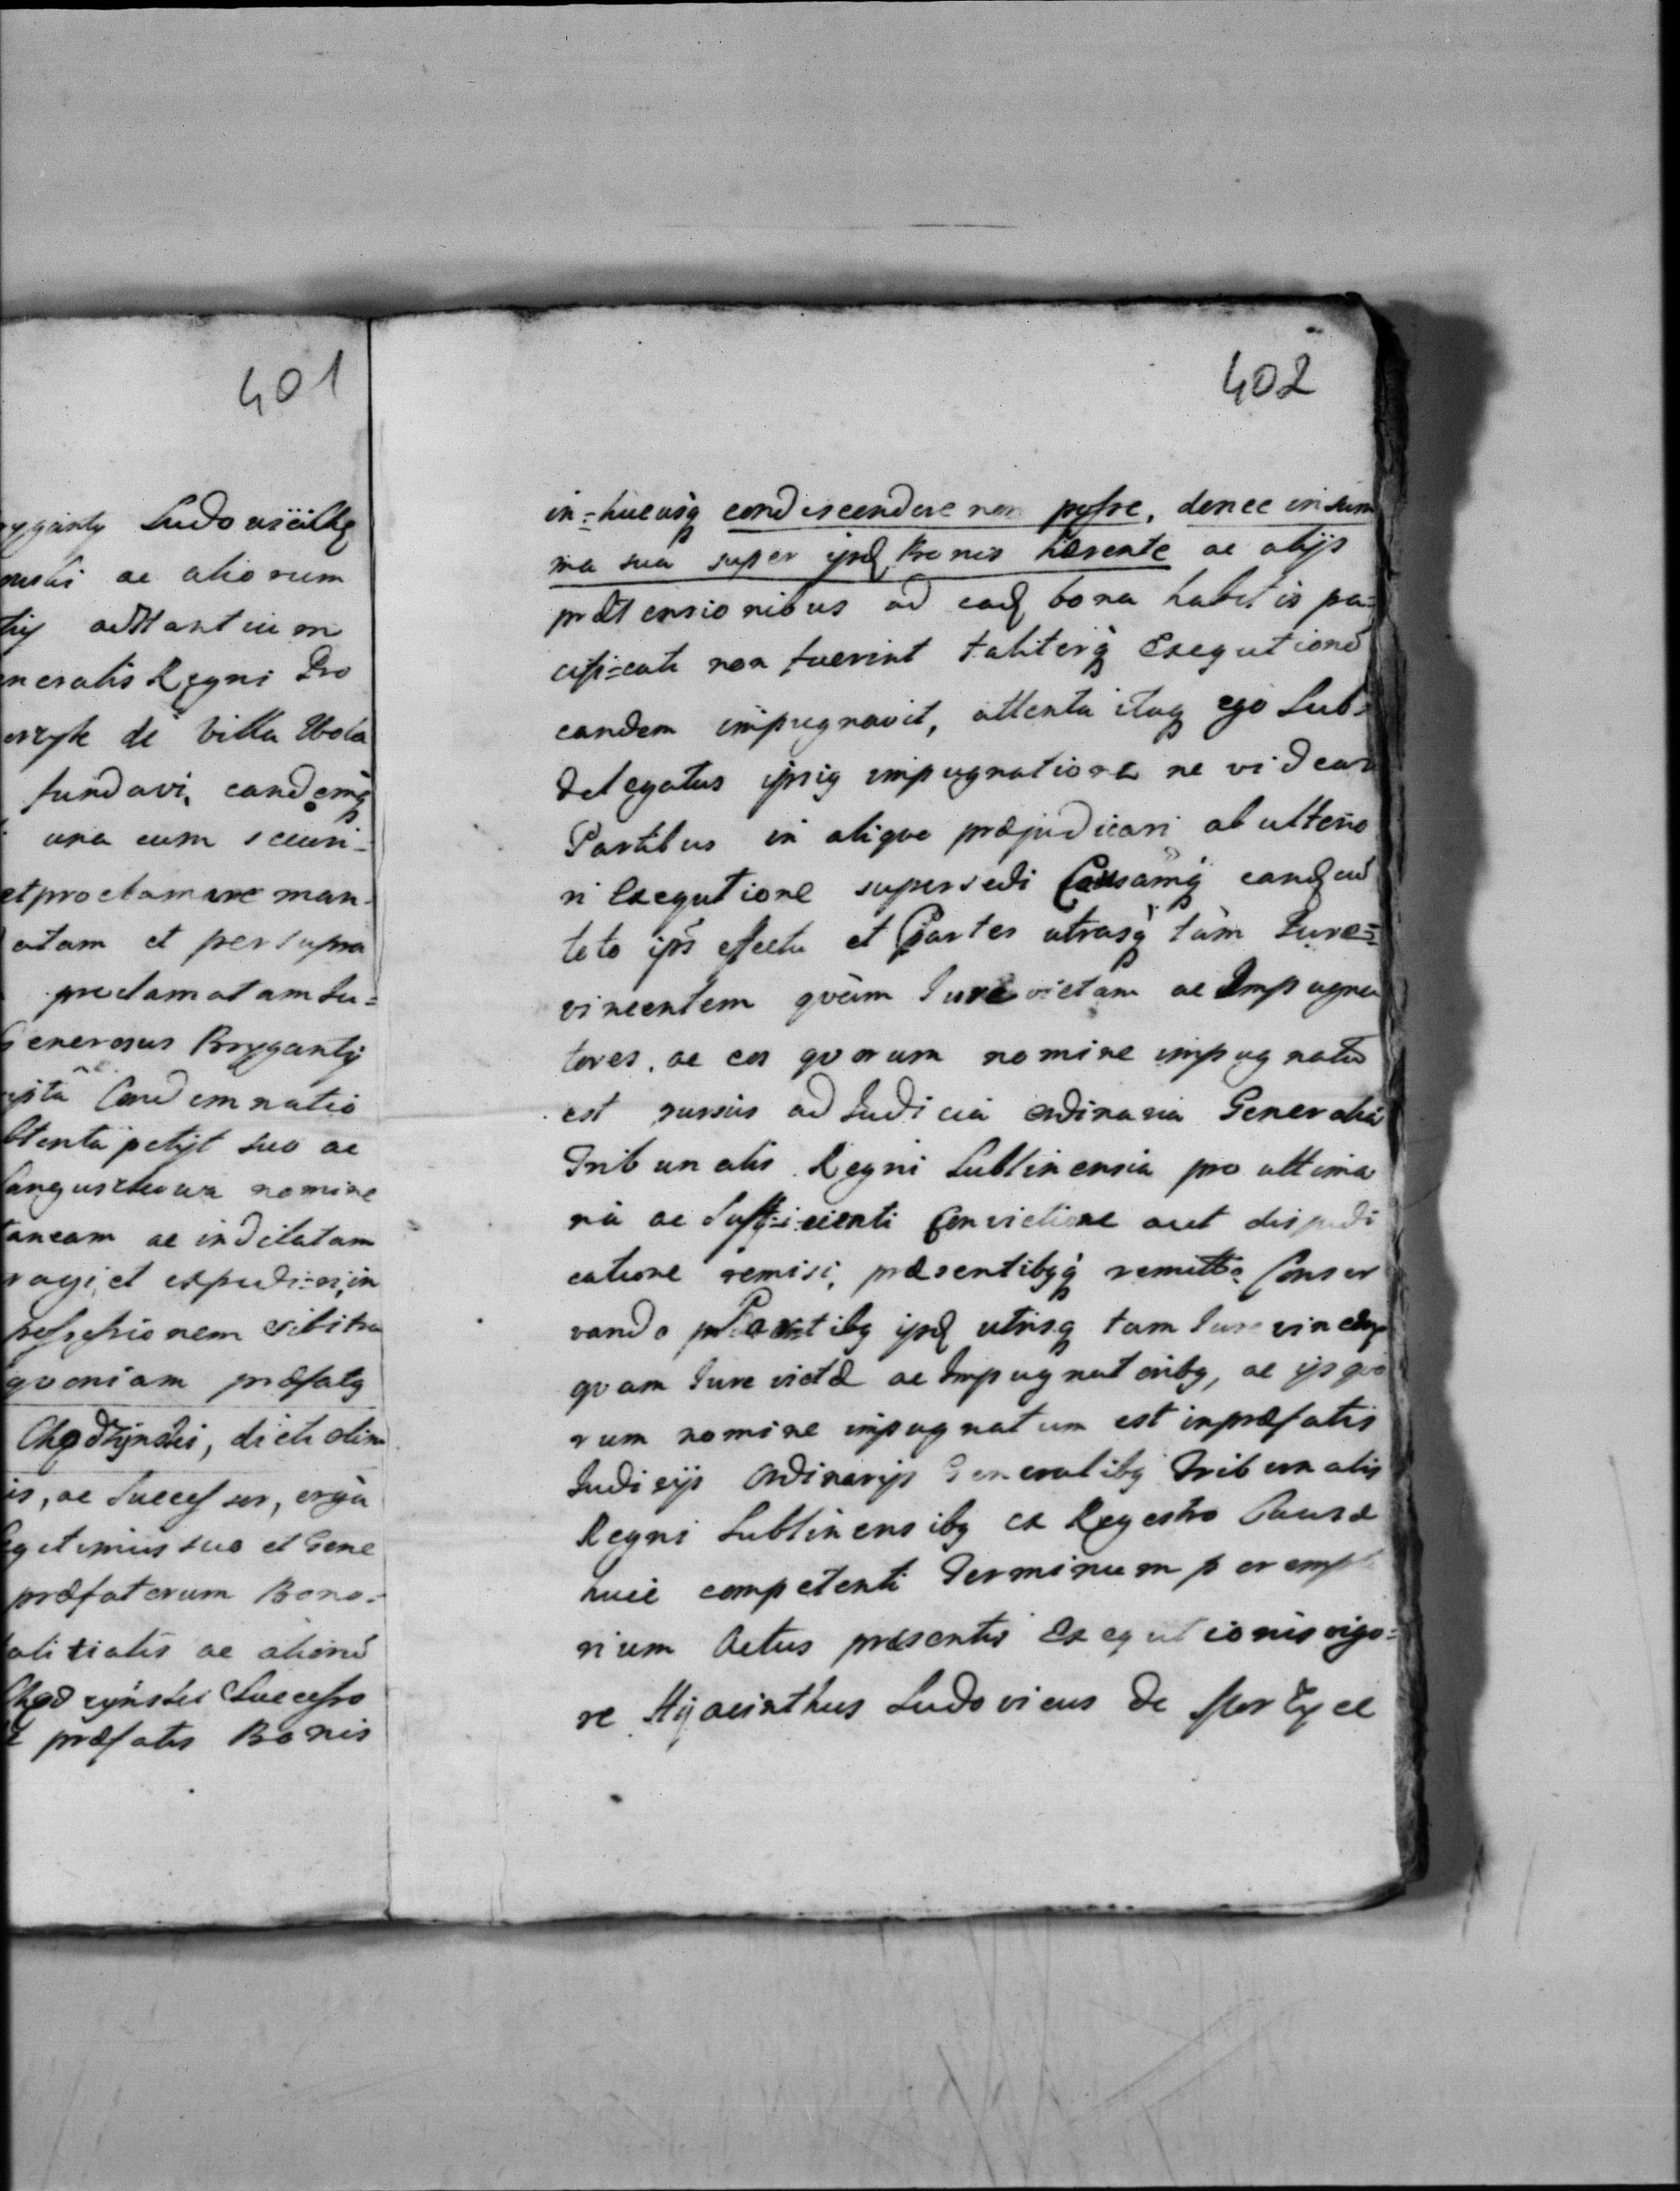 401
Ludovisilhę
ac aliorum
adstantium
neralis Regni Pro
de Villa Wola
fundavi, eandemq
una cum securi-
et proclamare man-
atam et per supra
proclamatam Su=
Generosus Brygantÿ
Condemnatio
petÿt suo ac
nomine
taneam ac indilatam
ragi, et expediri, in
possessionem sibi tra
qvoniam præfatę
Chądzÿnski, dicti olim
is, ac Successor, ergà
legitimius suo et Gene
præfatorum Bono=
ac alionū
Chądzyński Successo
præfatis Bonis
402
in=hucusq condescendere non posse, donec in sum
ma sua super ipsȩ Bonis hærente ac alijs
prætensionibus ad eadȩ bona habitis pa=
cifi=cati non fuerint taliterq Exequtionē
eandem impugnavit, attenta itaq ego Sub=
delegatus ipsiq impugnatione ne videar
Partibus in aliquo præjudicari ab ulterio
ri Exequtione supersedi Causamq eandȩ cū
toto ips effectu et Partes utrasq tàm Jure=
vincentem qvàm Jure victam ac Impugna
tores, ac eos qvorum nomine impugnatū
est rursùs ad Judicia Ordinaria Generalia
Tribunalis Regni Lublinensia pro ultima
ria ac Suffi=cienti Convictione aut disjudi
catione remisi, præsentibqq remitto Conser
vando Partibq ipsȩ utrisq tam Jure vincenti
qvam Jure victæ ac Impugnatoribq, ac ijs qvo
rum nomine impugnatum est in præfatis
Judicijs Ordinarijs Generalibq Tribunalis
Regni Lublinensibq ex Regestro Causæ
huic competenti Terminum perempto
rium Actus præsentis Exequtionis vigo=
re Hÿacinthus Ludovicus de